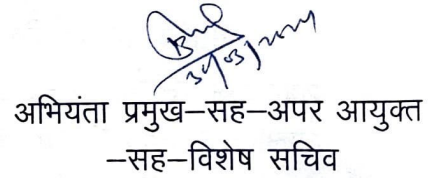 अभियंता प्रमुख–सह–अपर आयुक्त
–सह–विशेष सचिव